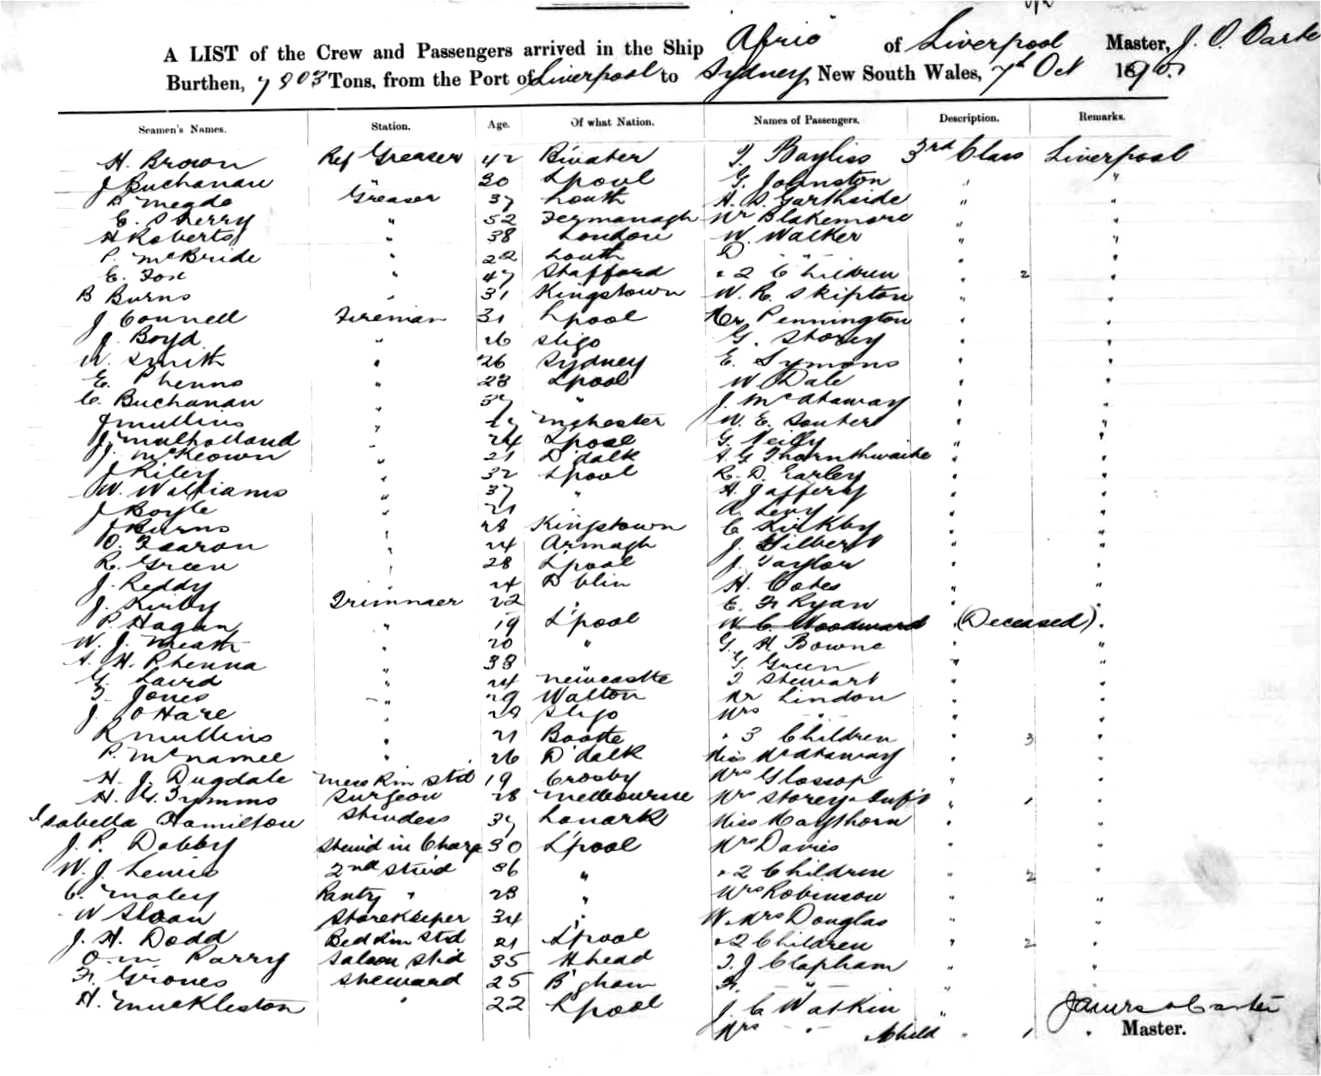 A LIST of the Crew and Passengers arrived in the Ship Afric of Liverpool Master, J. O. Carter
Burthen, 7803 Tons, from the Port of Liverpool to Sydney, New South Wales, 7th Oct
Seamen's Names. Station. Age. Of what Nation. Names of Passengers. Description. Remarks.
H. Brown Ref Greaser 42 T. Bayliss 3rd Class Liverpool
J Buchanan " 30 Lpool G. Johnston " "
B Meade Greaser 37 Louth A. S. Garthside " "
E. Sherry " 52 Fermanagh Mr Blakemore " "
H Roberts " 38 London W. Walker " "
P. McBride " 22 Louth D " " "
E. Fox " 47 Stafford " 2 Children " 2 "
B Burns " 31 Kingstown W. R. Skipton " "
J Connell Fireman 31 Lpool Pennington " "
J. Boyd " 26 Sligo G. Storey " "
W. Smith " 26 Sydney E. Symons " "
E. Phenna " 23 Lpool W Dale " "
C. Buchanan " 37 " J. McAtaway " "
J Mullins " Mnchester W. E. Souter " "
J. Mulholland " 24 Lpool G. Reilly " "
J. McKeown " 21 D'dalk A. G Thornthwaite " "
J Riley " 32 Lpool R. D. Earley " "
W. Williams " 37 " H. Jaffery " "
J Boyle " 21 " A. Levy " "
J Burns " 28 Kingstown C Kirkby " "
O. Fearon " 24 Armagh J. Gilbert " "
R. Green " 28 L'pool J. Taylor " "
J. Reddy " 24 D'blin H. Cotes " "
J. Kirby Trimmer 22 " E. Fr Ryan " "
P. Hagan " 19 L'pool W C Woodward " (Deceased) "
W. J. Meath " 20 " G. H Bowne " "
A. H. Phenna " 38 G. Green " "
G. Laird " 24 Newcastle T Stewart " "
T. Jones " 29 Walton Mr Lindon " "
J. O'Hare " 29 Sligo Mrs " " "
R Mullins " 21 Bootle " 3 Children " 3 "
P. McNamee " 26 D'dalk Miss McAtaway " "
H. J. Dugdale Mess Rm Std 19 Crosby Mrs Glossop " "
H. G. Symms Surgeon 28 Melbourne Mrs Storey & Inft " 1 "
Isabella Hamilton Stwdess 37 Lanark Miss Haythorn " "
J. P. Dobby Stew'd in Charge 30 L'pool Mrs Davies " "
W. J. Lewis 2nd Stw'd 36 " " 2 Children " 2 "
C. Maley Pantry " 28 " Mrs Robinson " "
W Sloan Storekeeper 34 " W. Mrs Douglas " "
J. H. Dodd Bed Rm Std 21 L'pool " 2 Children " 2 "
O. M. Parry Saloon Std 35 H'head T. J Clapham " "
Fr. Groves Steward 25 B'gham Fr. " " "
H. Muckleston " 22 Lpool J. C Watkin " James O Carter
Mrs " & Child " 1 " Master.